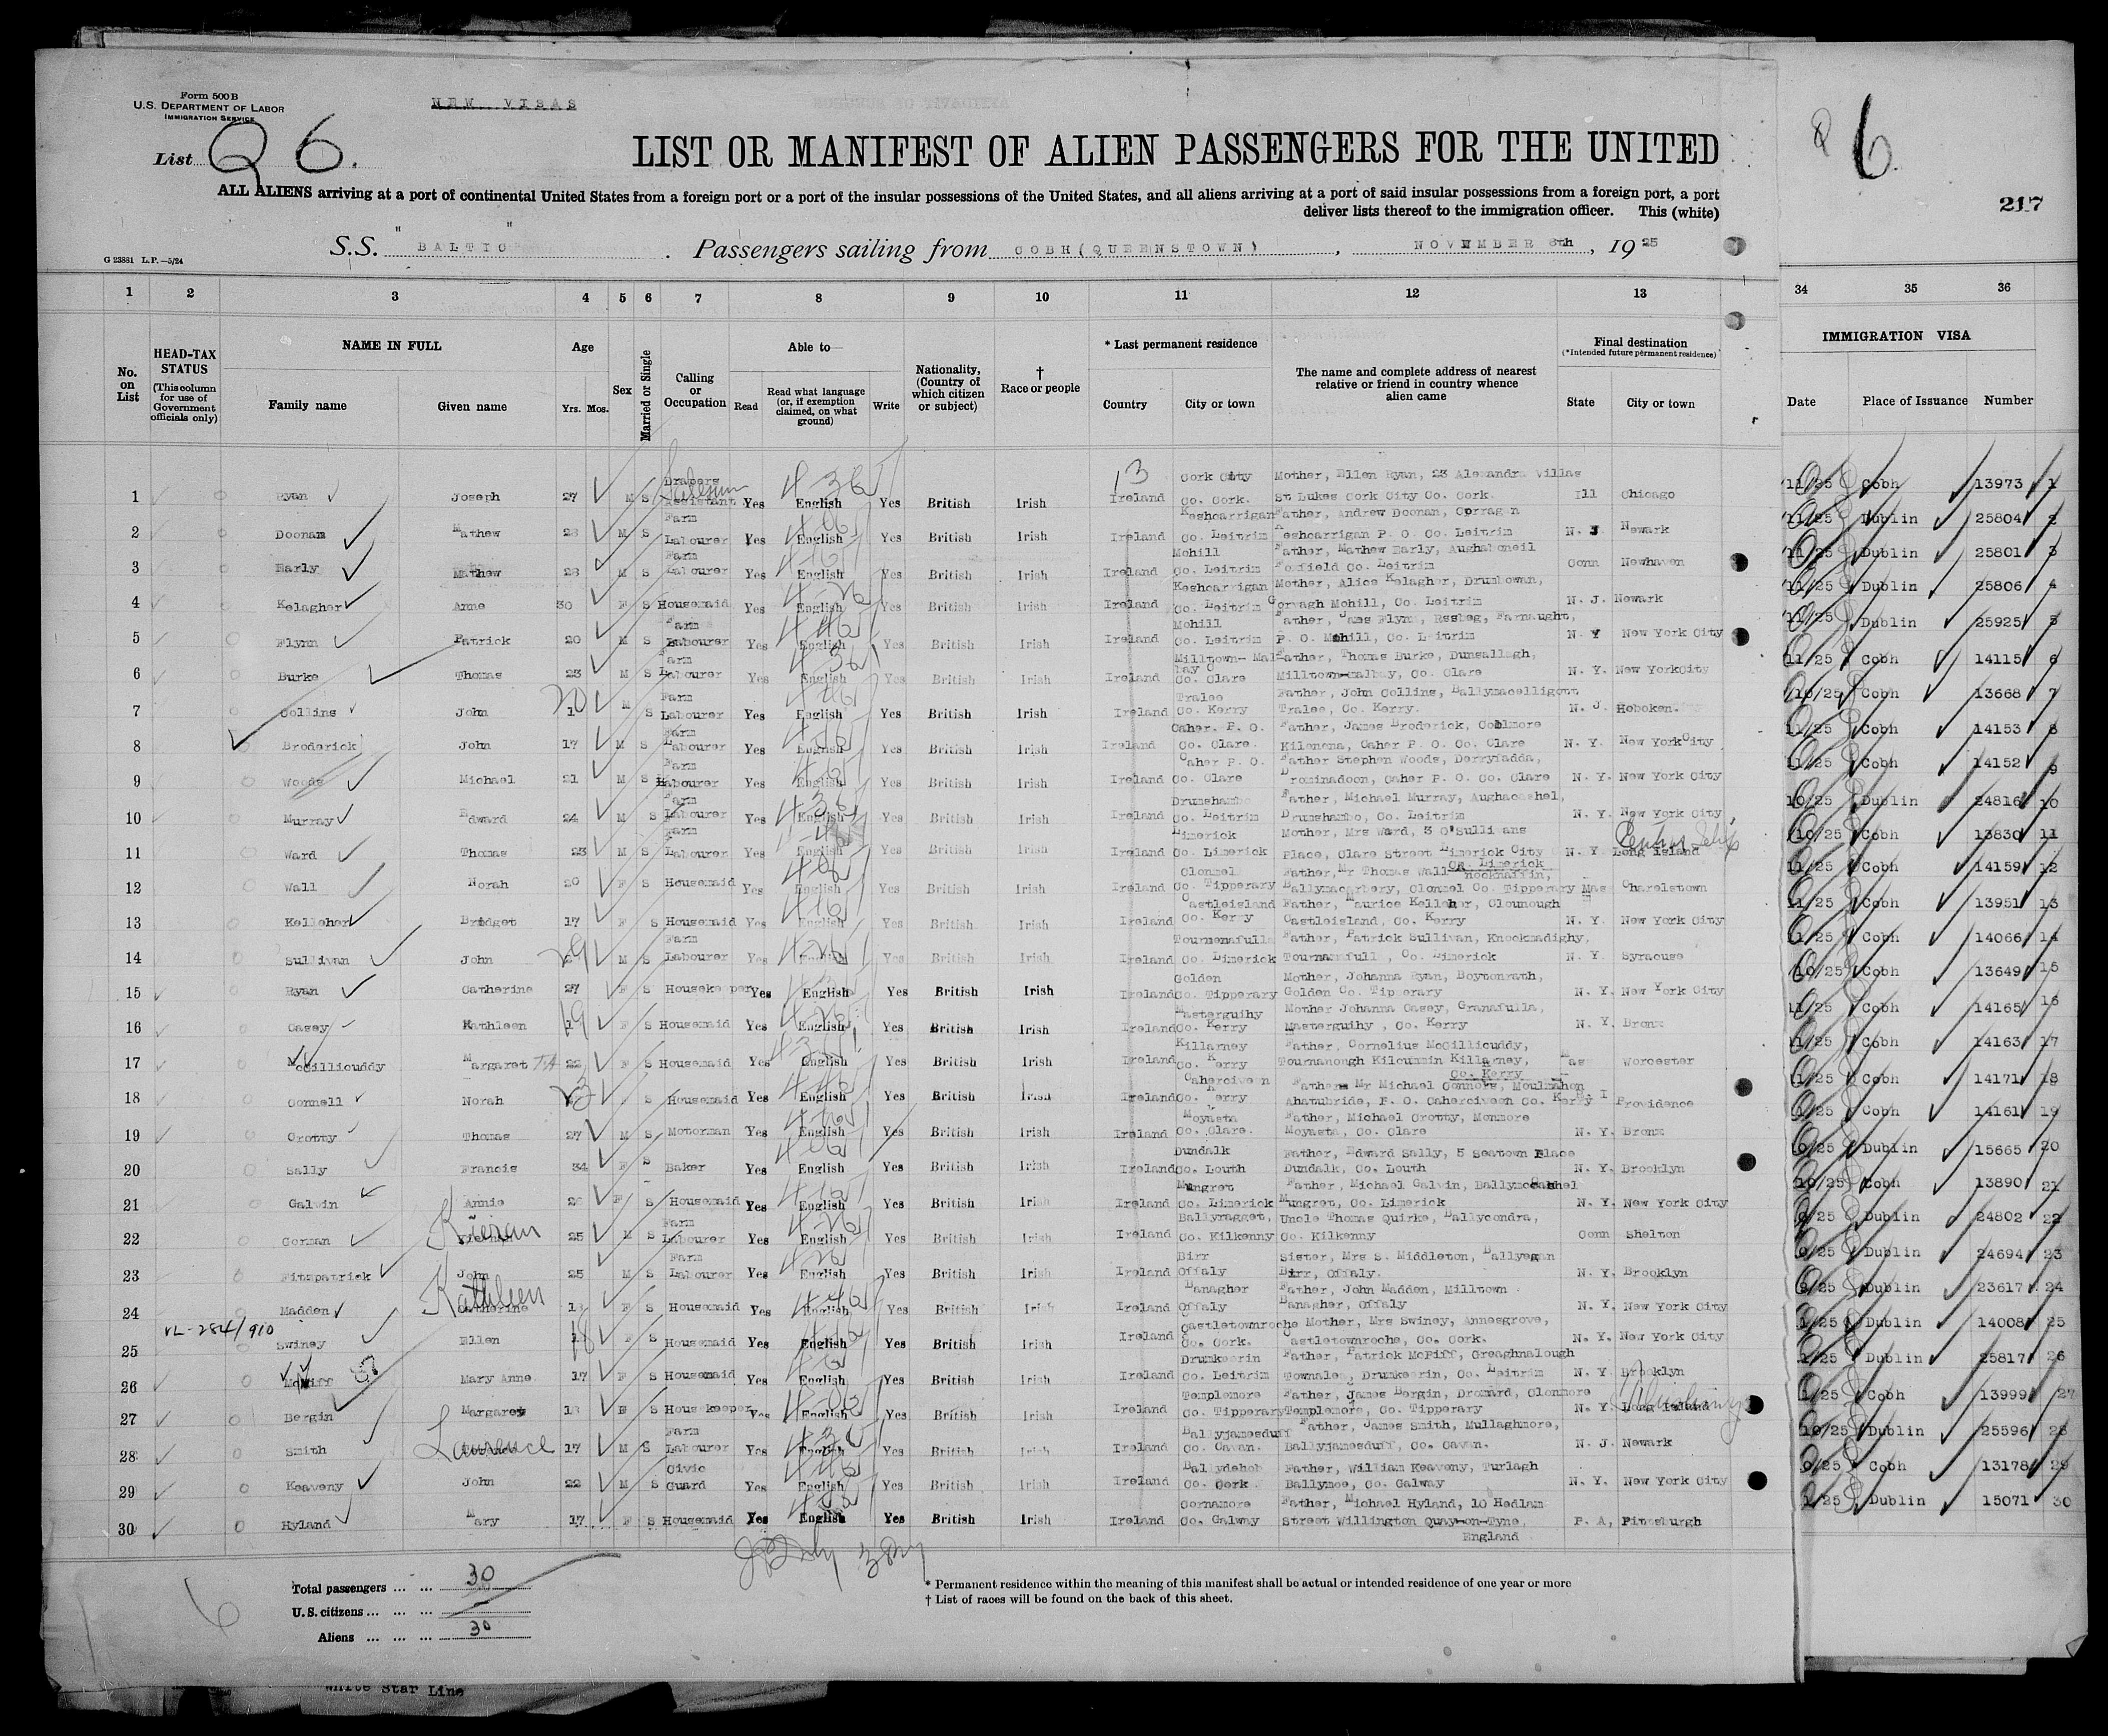 Form 500 B
U.S. DEPARTMENT OF LABOR
IMMIGRATION SERVICE
NEW VISAS
List Q 6.
LIST OR MANIFEST OF ALIEN PASSENGERS FOR THE UNITED
6
217
ALL ALIENS arriving at a port of continental United States from a foreign port or a port of the insular possessions of the United States, and all aliens arriving at a port of said insular possessions from a foreign port, a port
deliver lists thereof to the immigration officer. This (white)
S.S. "BALTIC" . Passengers sailing from COBH (QUEENSTOWN) , NOVEMBER 6th , 1925
G 23881 L.P.—5/24
1 2 3 4 5 6 7 8 9 10 11 12 13 34 35 36
No. on List
HEAD-TAX STATUS (This column for use of Government officials only)
NAME IN FULL Family name Given name
Age Yrs. Mos.
Sex
Married or Single
Calling or Occupation
Able to— Read Read what language (or, if exemption claimed, on what ground) Write
Nationality, (Country of which citizen or subject)
† Race or people
* Last permanent residence Country City or town
The name and complete address of nearest relative or friend in country whence alien came
Final destination (*Intended future permanent residence) State City or town
IMMIGRATION VISA Date Place of Issuance Number
1 Ryan Joseph 27 M S Drapers Assistant Yes English Yes British Irish Ireland Cork City Co. Cork. Mother, Ellen Ryan, 23 Alexandra Villas St Lukes Cork City Co. Cork. Ill Chicago 11/25 Cobh 13973 1
2 Doonan Mathew 28 M S Farm Labourer Yes English Yes British Irish Ireland Keshcarrigan Co. Leitrim Father, Andrew Doonan, Corragen Keshcarrigan P. O. Co. Leitrim N. J Newark 11/25 Dublin 25804 2
3 Early Mathew 28 M S Farm Labourer Yes English Yes British Irish Ireland Mohill Co. Leitrim Father, Mathew Early, Aughaboneil Foxfield Co. Leitrim Conn Newhaven 11/25 Dublin 25801 3
4 Kelagher Anne 30 F S Housemaid Yes English Yes British Irish Ireland Keshcarrigan Co. Leitrim Mother, Alice Kelagher, Drumbowan, Gorvagh Mohill, Co. Leitrim N. J. Newark 11/25 Dublin 25806 4
5 Flynn Patrick 20 M S Farm Labourer Yes English Yes British Irish Ireland Mohill Co. Leitrim Father, James Flynn, Rssbeg, Farnaught, P. O. Mohill, Co. Leitrim N. Y New York City 11/25 Dublin 25925 5
6 Burke Thomas 23 M S Farm Labourer Yes English Yes British Irish Ireland Milltown-Mal bay Co. Clare Father, Thomas Burke, Dunsallagh, Milltown-malbay, Co. Clare N. Y. New YorkCity 11/25 Cobh 14115 6
7 Collins John 20 M S Farm Labourer Yes English Yes British Irish Ireland Tralee Co. Kerry Father, John Collins, Ballymacelligott Tralee, Co. Kerry. N. J. Hoboken. 10/25 Cobh 13668 7
8 Broderick John 17 M S Farm Labourer Yes English Yes British Irish Ireland Caher. P. O. Co. Clare. Father, James Broderick, Coolmore Kilenena, Caher P. O. Co. Clare N. Y. New YorkCity 11/25 Cobh 14153 8
9 Woods Michael 21 M S Farm Labourer Yes English Yes British Irish Ireland Caher P. O. Co. Clare Father Stephen Woods, Derryfadda, Drominadoon, Caher P. O. Co. Clare N. Y. New York City 11/25 Cobh 14152 9
10 Murray Edward 24 M S Farm Labourer Yes English Yes British Irish Ireland Drumshambo Co. Leitrim Father, Michael Murray, Aughacashel, Drumshambo, Co. Leitrim N. Y. New York City 10/25 Dublin 24816 10
11 Ward Thomas 23 M S Farm Labourer Yes English Yes British Irish Ireland Limerick Co. Limerick Mother, Mrs Ward, 3 O'Sullivans Place, Clare Street Limerick City Co. Limerick N. Y. Long Island 10/25 Cobh 13830 11
12 Wall Norah 20 F S Housemaid Yes English Yes British Irish Ireland Clonmel Co. Tipperary Father, Mr Thomas Wall Ballymacarbery, Clonmel Co. Tipperary Mass Charelstown 11/25 Cobh 14159 12
13 Kelleher Bridget 17 F S Housemaid Yes English Yes British Irish Ireland Castleisland Co. Kerry Father, Maurice Kelleher, Clounough Castleisland, Co. Kerry N. Y. New York City 11/25 Cobh 13951 13
14 Sullivan John 29 M S Farm Labourer Yes English Yes British Irish Ireland Tournenafulla Co. Limerick Father, Patrick Sullivan, Knockmadighy, Co. Limerick N. Y. Syracuse 11/25 Cobh 14066 14
15 Ryan Catherine 27 F S Housekeeper Yes English Yes British Irish Ireland Golden Co. Tipperary Mother, Johanna Ryan, Boytonrath, Golden Co. Tipperary N. Y. New York City 10/25 Cobh 13649 15
16 Casey Kathleen 19 F S Housemaid Yes English Yes British Irish Ireland Masterguihy Co. Kerry Mother Johanna Casey, Granafulla, Masterguihy, Co. Kerry N. Y. Bronx 11/25 Cobh 14165 16
17 McGillicuddy Margaret 22 F S Housemaid Yes English Yes British Irish Ireland Killarney Co. Kerry Father, Cornelius McGillicuddy, Tournanough Kilcummin Killarney, Co. Kerry Mass Worcester 11/25 Cobh 14163 17
18 Connell Norah 23 S Housemaid Yes English Yes British Irish Ireland Caherciveen Co. Kerry Father Mr Michael Connors, Moulnahon Ahatubride, P. O. Caherciveen Co. Kerry R. I Providence 11/25 Cobh 14171 18
19 Crotty Thomas 27 M S Motorman Yes English Yes British Irish Ireland Moyasta Co. Clare. Father, Michael Crotty, Monmore Moyasta, Co. Clare N. Y. Bronx 11/25 Cobh 14161 19
20 Sally Francis 34 F S Baker Yes English Yes British Irish Ireland Dundalk Co. Louth Father, Edward Sally, 5 Seatown Place Dundalk, Co. Louth N. Y. Brooklyn 10/25 Dublin 15665 20
21 Galvin Annie 26 F S Housemaid Yes English Yes British Irish Ireland Mungret Co. Limerick Father, Michael Galvin, Ballymocashel Mungret, Co. Limerick N. Y. New York City 10/25 Cobh 13890 21
22 Gorman Kieran 25 M S Farm Labourer Yes English Yes British Irish Ireland Ballyragget, Co. Kilkenny Uncle Thomas Quirke, Ballycondra, Co. Kilkenny Conn Shelton 9/25 Dublin 24802 22
23 Fitzpatrick John 25 M S Farm Labourer Yes English Yes British Irish Ireland Birr Offaly Sister, Mrs S. Middleton, Ballyegan Birr, Offaly. N. Y. Brooklyn 9/25 Dublin 24694 23
24 Madden Kathleen 18 F S Housemaid Yes English Yes British Irish Ireland Banagher Offaly Father, John Madden, Milltown Banagher, Offaly N. Y. New York City 9/25 Dublin 23617 24
VL-284/910
25 Swiney Ellen 18 F S Housemaid Yes English Yes British Irish Ireland Castletownroche Co. Cork. Mother, Mrs Swiney, Annesgrove, Castletownroche, Co. Cork. N. Y. New York City 1/25 Dublin 14008 25
26 McNiff Mary Anne 17 F S Housemaid Yes English Yes British Irish Ireland Drumkeerin Co. Leitrim Father, Patrick McPiff, Greaghnalough Townalee, Drumkeerin, Co. Leitrim N. Y. Brooklyn 1/25 Dublin 25817 26
27 Bergin Margaret 18 F S Housekeeper Yes English Yes British Irish Ireland Templemore Co. Tipperary Father, James Bergin, Dromard, Clonmore Templemore, Co. Tipperary N. Y. Long Island Flushing 1/25 Cobh 13999 27
28 Smith Laurence 17 M S Farm Labourer Yes English Yes British Irish Ireland Ballyjamesduff Co. Cavan. Father, James Smith, Mullaghmore, Ballyjamesduff, Co. Cavan. N. J. Newark 10/25 Dublin 25596 28
29 Keaveny John 22 M S Civic Guard Yes English Yes British Irish Ireland Ballydehob Co. Cork Father, William Keaveny, Turlagh Ballymoe, Co. Galway N. Y. New York City 9/25 Cobh 13178 29
30 Hyland Mary 17 F S Housemaid Yes English Yes British Irish Ireland Cornamore Co. Galway Father, Michael Hyland, 10 Hedlam Street Willington Quay-on-Tyne, England P. A, Pittsburgh 1/25 Dublin 15071 30
Total passengers ... ... 30
U.S. citizens ... ... ... —
Aliens ... ... ... 30
6
* Permanent residence within the meaning of this manifest shall be actual or intended residence of one year or more
† List of races will be found on the back of this sheet.
White Star Line